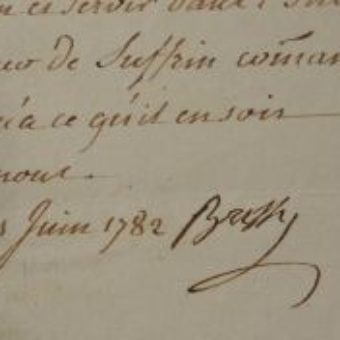 ce servir dans l'
de Suffrin com̃an
a ce qu'il en soit
Juin 1782 Bussy